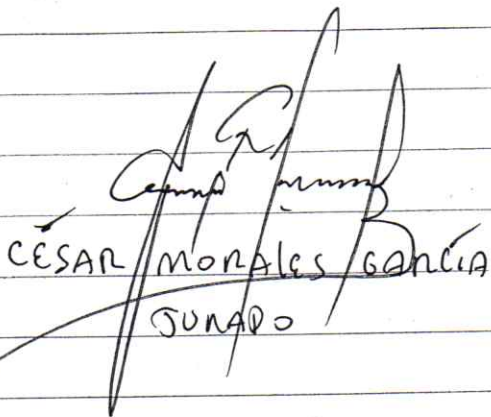 CÉSAR MORALES GARCÍA
JURADO